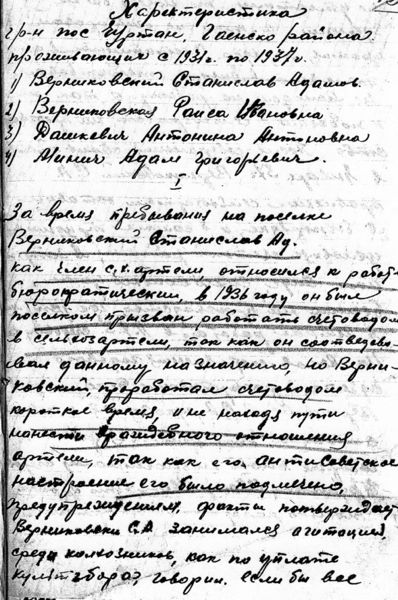 Характеристика
гр-н пос Чуртан, Гаенско района
проживающих с 1931г. по 1937г.
1) Верниковский Станислав Адамов.
2) Верниковская Раиса Ивановна
3) Дашкевич Антонина Антоновна
4) Минич Адам Григорьевич.
I
За время пребывания на поселке
Верниковский Станислав Ад.
как член с.х. артели относился к работе
бюрократически в 1936 году он был
поселком призван работать счетоводом
в сельхозартели, так как он соответство-
вал данному назначению, но Верни-
ковский, проработал счетоводом
короткое время и не находя пути
нанести враждебного отношения
артели, так как его антисоветское
настроение его было подмечено,
предупреждением, факты потверждает
Верниковски С.А занимался агитацией
среди колхозников, как по уплате
культсбора, говорил. если бы все